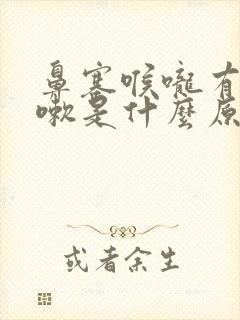 鼻塞喉嚨有
嗽是什麼原
或者余生